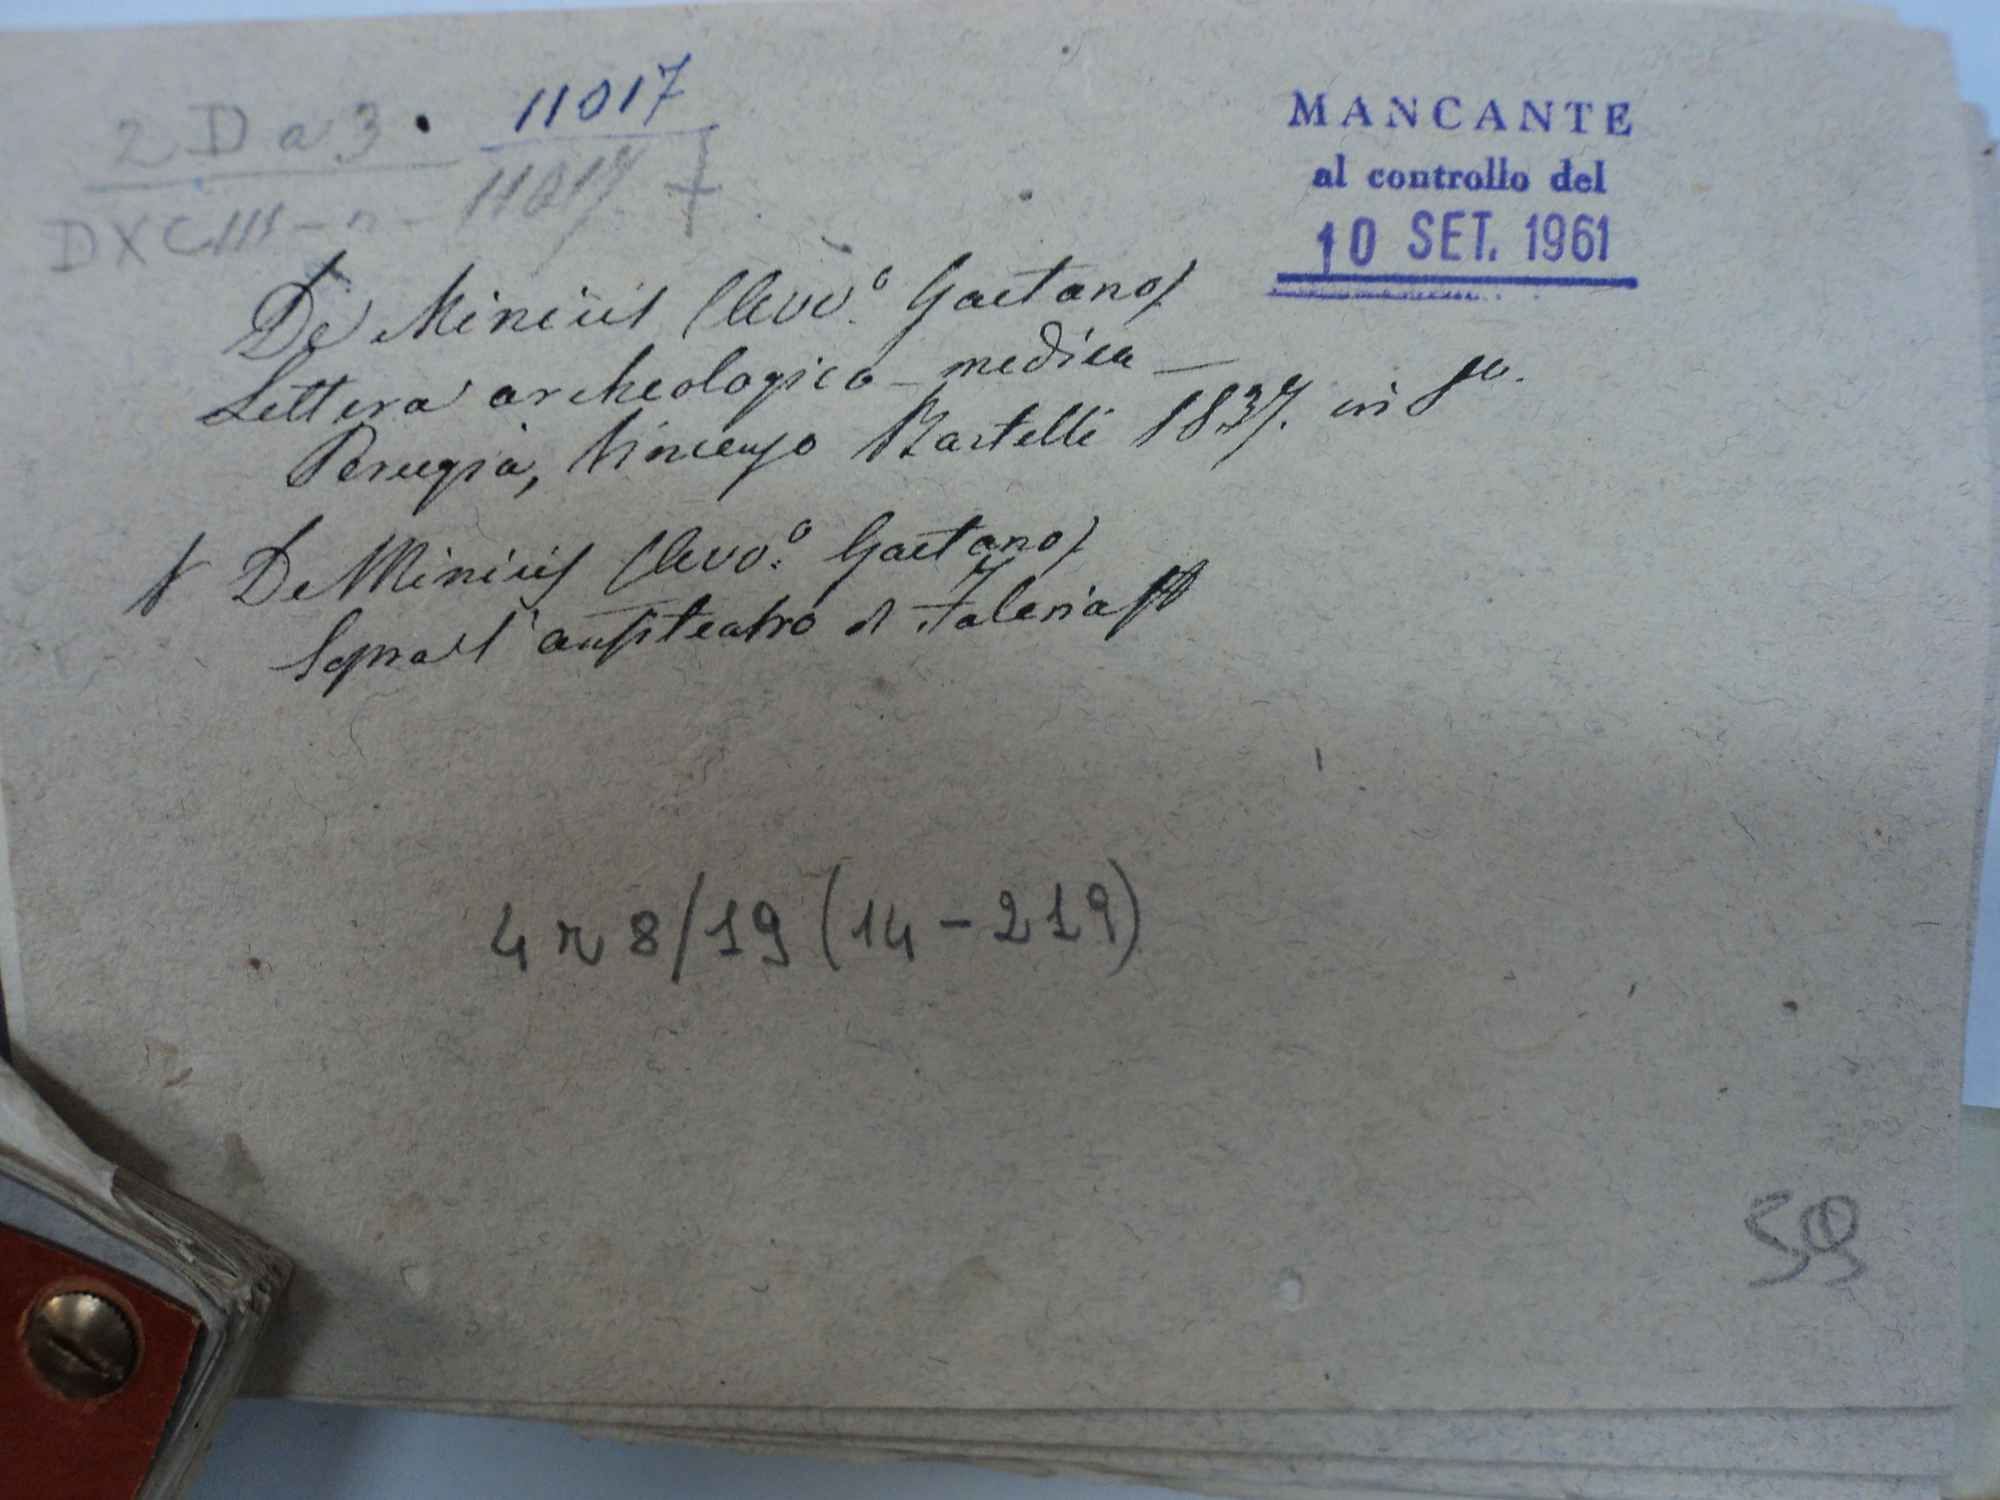 2 D a 3. 11017
DXCIII - n - 11017
MANCANTE
al controllo del
10 SET. 1961
De Minicis (Avv.º Gaetano)
Lettera archeologico-medica —
Perugia, Vincenzo Bartelli 1837. in 8º.
De Minicis (Avvo.º Gaetano)
Sopra l'anfiteatro di Faleria
4 r 8/19 (14-219)
59